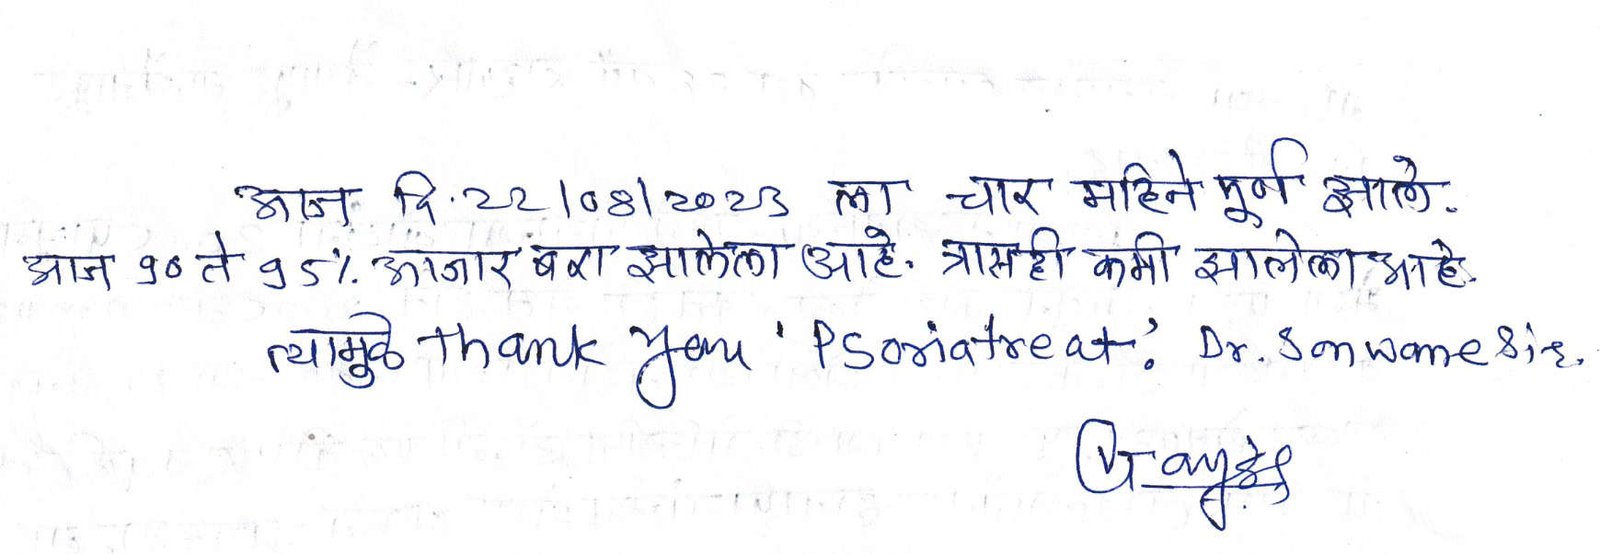 आज दि. 22/08/2023 ला चार महिने पूर्ण झाले.
आज 90 ते 95% आजार बरा झालेला आहे. त्रासही कमी झालेला आहे.
त्यामुळे thank you 'Psoriatreat' Dr. Sonwane Sir.